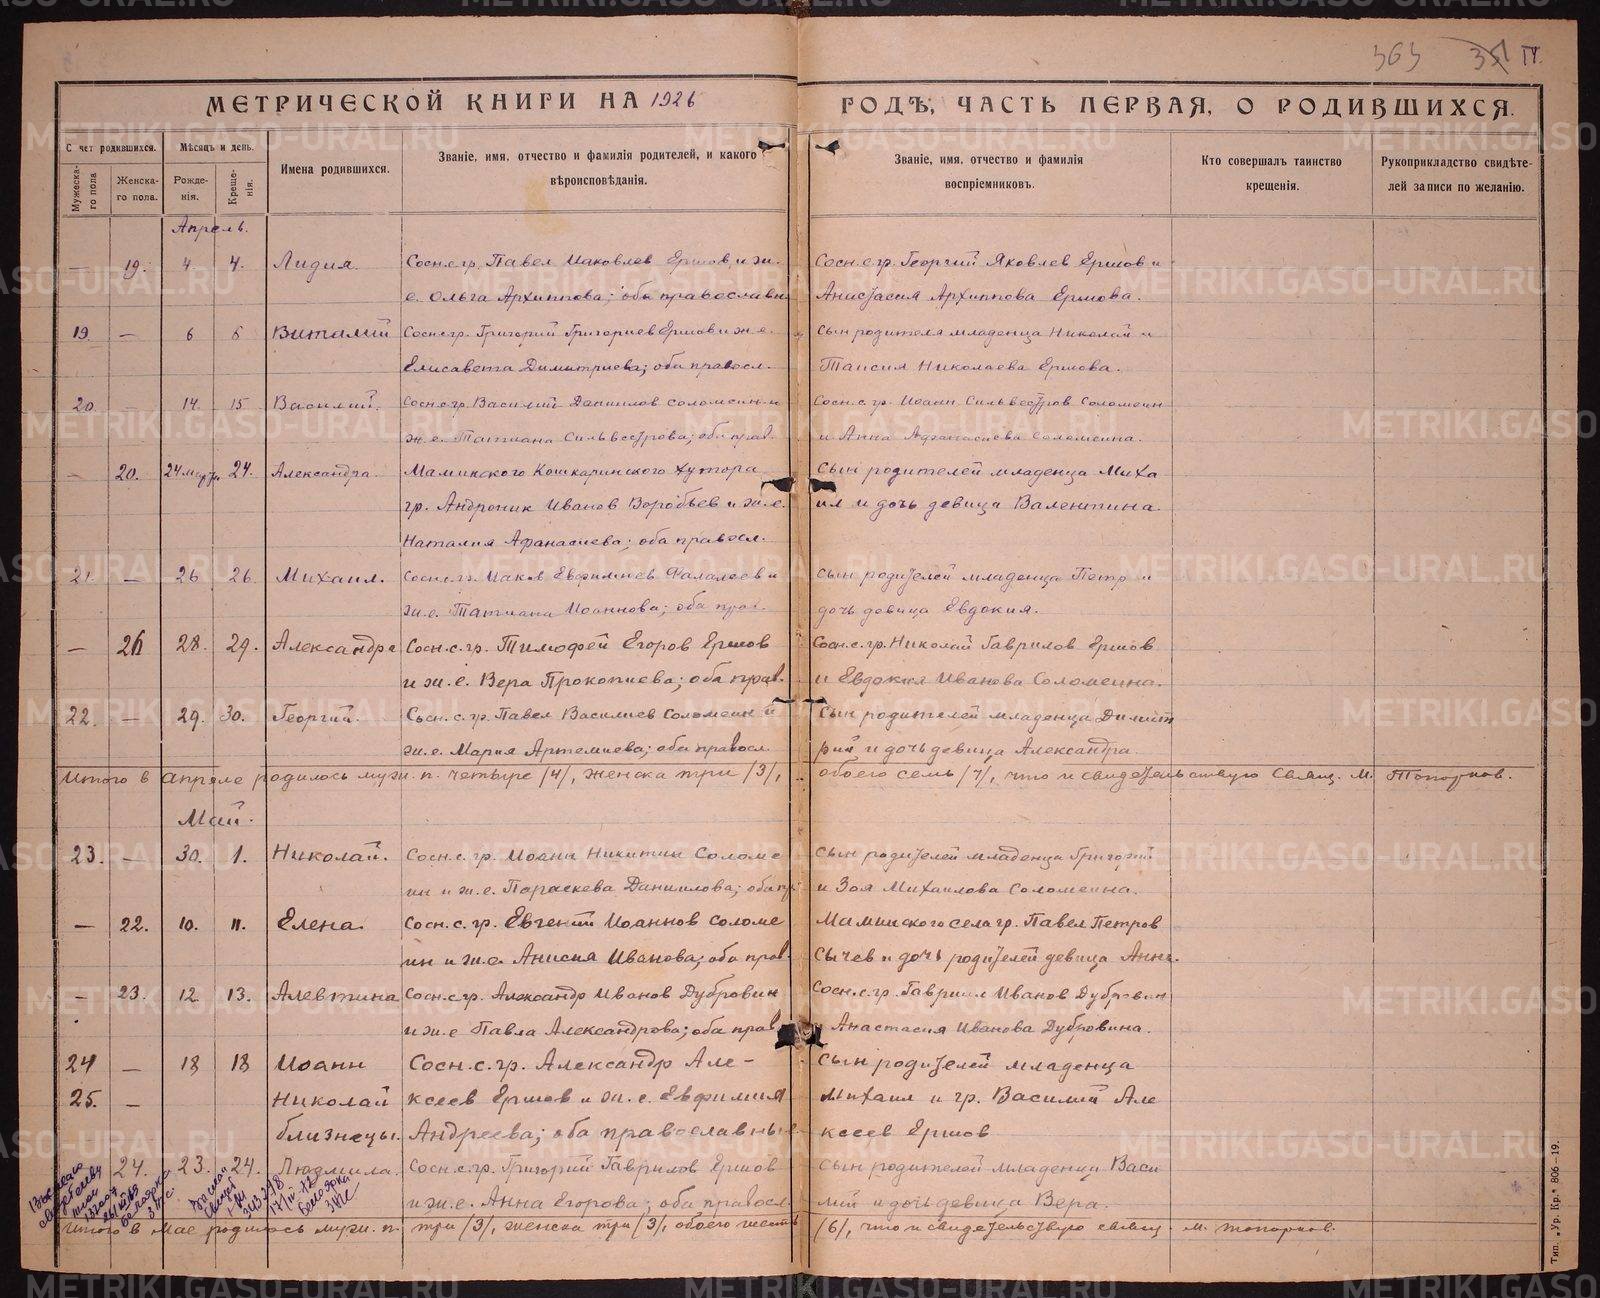 363 35 IV.
МЕТРИЧЕСКОЙ КНИГИ НА 1926 ГОДЪ, ЧАСТЬ ПЕРВАЯ, О РОДИВШИХСЯ.
Счет родившихся. Мѣсяцъ и день. Имена родившихся. Званіе, имя, отчество и фамилія родителей, и какого вѣроисповѣданія. Званіе, имя, отчество и фамилія воспріемниковъ. Кто совершалъ таинство крещенія. Рукоприкладство свидѣтелей записи по желанію.
Мужеска-го пола Женска-го пола. Рожде-нія. Креще-нія.
Апрель.
— 19. 4. 4. Лидия. Сосн.с.гр. Павел Иаковлев Ершов, и ж. Сосн.с.гр. Георгий Яковлев Ершов и
е. Ольга Архиппова; оба православн Анастасия Архиппова Ершова.
19. — 6 6 Виталий Сосн.с.гр. Григорий Григориев Ершов и ж.е. Сын родителя младенца Николай и
Елисавета Димитриева; оба правосл. Таисия Николаева Ершова.
20 — 14. 15 Василий. Сосн.с.гр. Василий Даниилов Соломеин и Сосн.с.гр. Иоанн Сильвестров Соломеин
ж.е. Татиана Сильвестрова; оба прав. и Анна Афанасиева Соломеина.
— 20. 24 март. 24. Александра Маминского Кошкаринского хутора Сын родителей младенца Миха
гр. Андроник Иванов Воробьев и ж.е. ил и дочь девица Валентина.
Наталия Афанасиева; оба правосл.
21. — 26 26. Михаил. Сосн.с.гр. Иаков Евфимиев Фалалеев и Сын родителей младенца Петр и
ж.е. Татиана Иоаннова; оба прав. дочь девица Евдокия.
— 21 28. 29. Александра Сосн.с.гр. Тимофей Егоров Ершов Сосн.с.гр. Николай Гаврилов Ершов
и ж.е. Вера Прокопиева; оба прав. и Евдокия Иванова Соломеина.
22. — 29. 30. Георгий. Сосн.с.гр. Павел Василиев Соломеин и Сын родителей младенца Димит
ж.е. Мария Артемиева; оба правосл. рий и дочь девица Александра.
Итого в апреле родилось муж. п. четыре /4/, женска три /3/, обоего семь /7/, что и свидетельствую Свящ. М. Топорков.
Май.
23. — 30. 1. Николай. Сосн.с.гр. Иоанн Никитин Соломе Сын родителей младенца Григорий
ин и ж.е. Параскева Даниилова; оба пр. и Зоя Михаилова Соломеина.
— 22. 10. 11. Елена. Сосн.с.гр. Евгений Иоаннов Соломе Маминского села гр. Павел Петров
ин и ж.е. Анисия Иванова; оба прав. Сычев и дочь родителей девица Анна.
— 23. 12. 13. Алевтина Сосн.с.гр. Александр Иванов Дубровин Сосн.с.гр. Гавриил Иванов Дубровин
и ж.е Павла Александрова; оба прав и Анастасия Иванова Дубровина.
24 — 18 18 Иоанн Сосн.с.гр. Александр Але- Сын родителей младенца
25. — Николай ксеев Ершов и ж.е. Евфимия Михаил и гр. Василий Але
близнецы. Андреева; оба православные ксеев Ершов
24. 23. 24. Людмила. Сосн.с.гр. Григорий Гаврилов Ершов Сын родителей младенца Васи
и ж.е. Анна Егорова; оба правосл. лий и дочь девица Вера.
Итого в Мае родилось муж. п. три /3/, женска три /3/, обоего шесть /6/, что и свидетельствую свящ. М. Топорков.
Тип. „Ур. Кр." 806—19.
METRIKI.GASO-URAL.RU